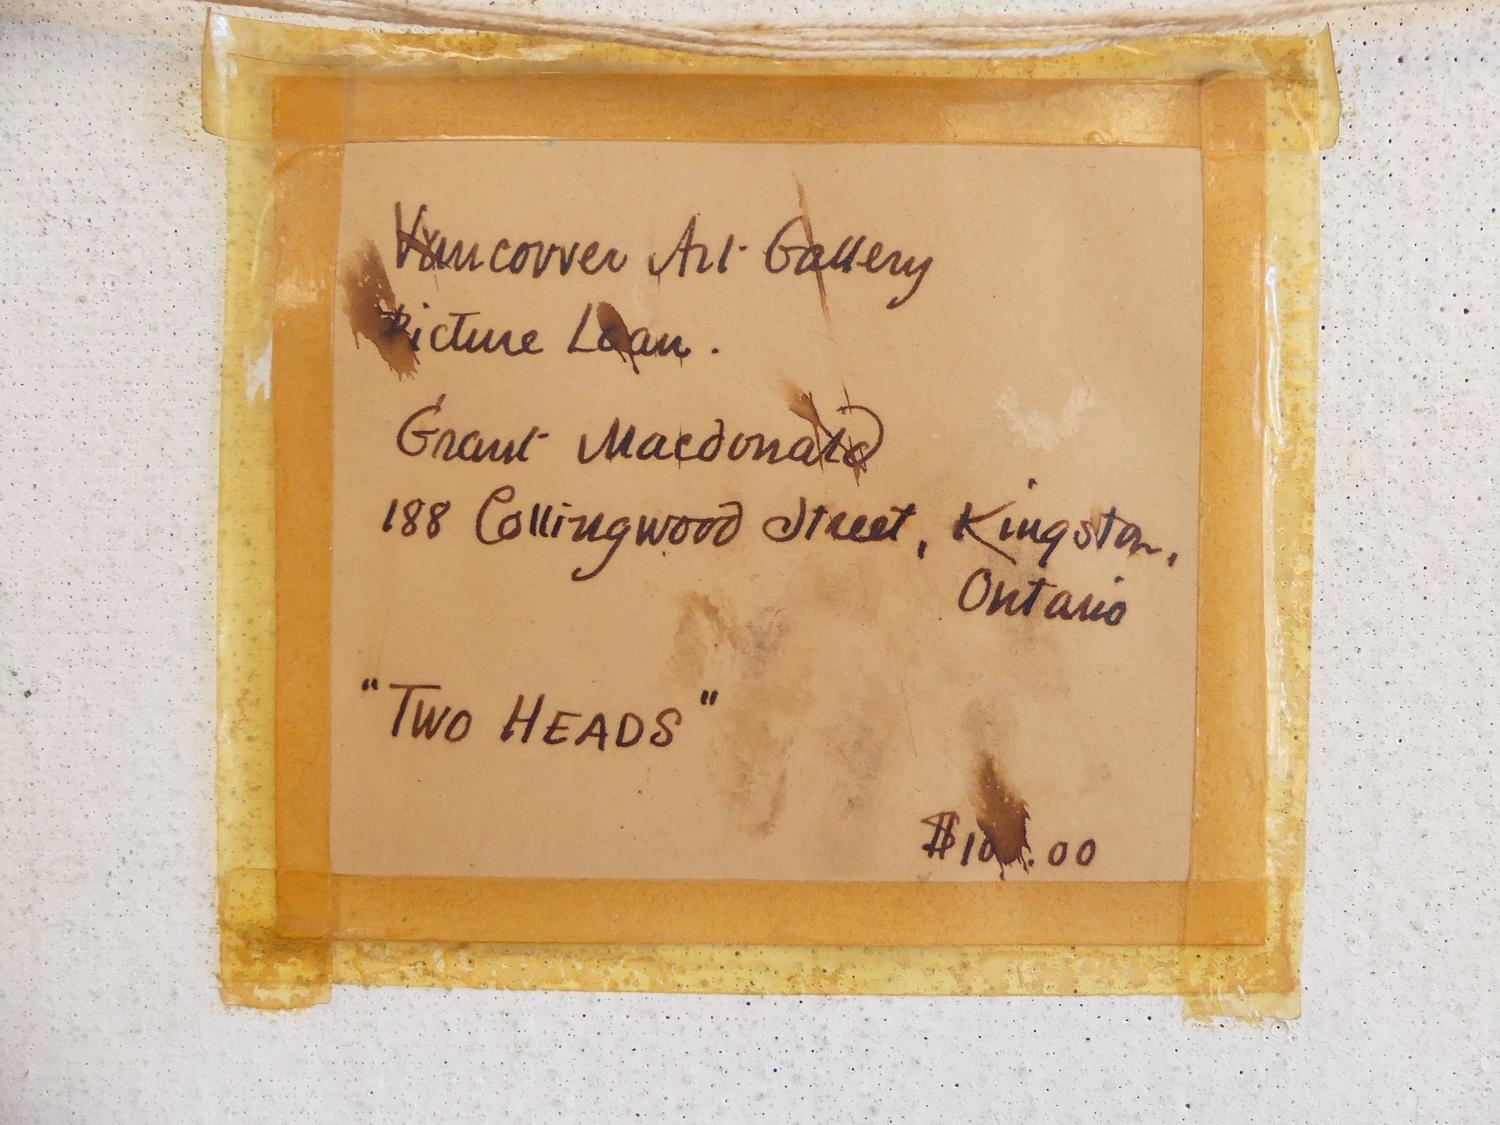 Vancouver Art Gallery
Picture Loan.
Grant Macdonald
188 Collingwood Street, Kingston,
Ontario
"TWO HEADS"